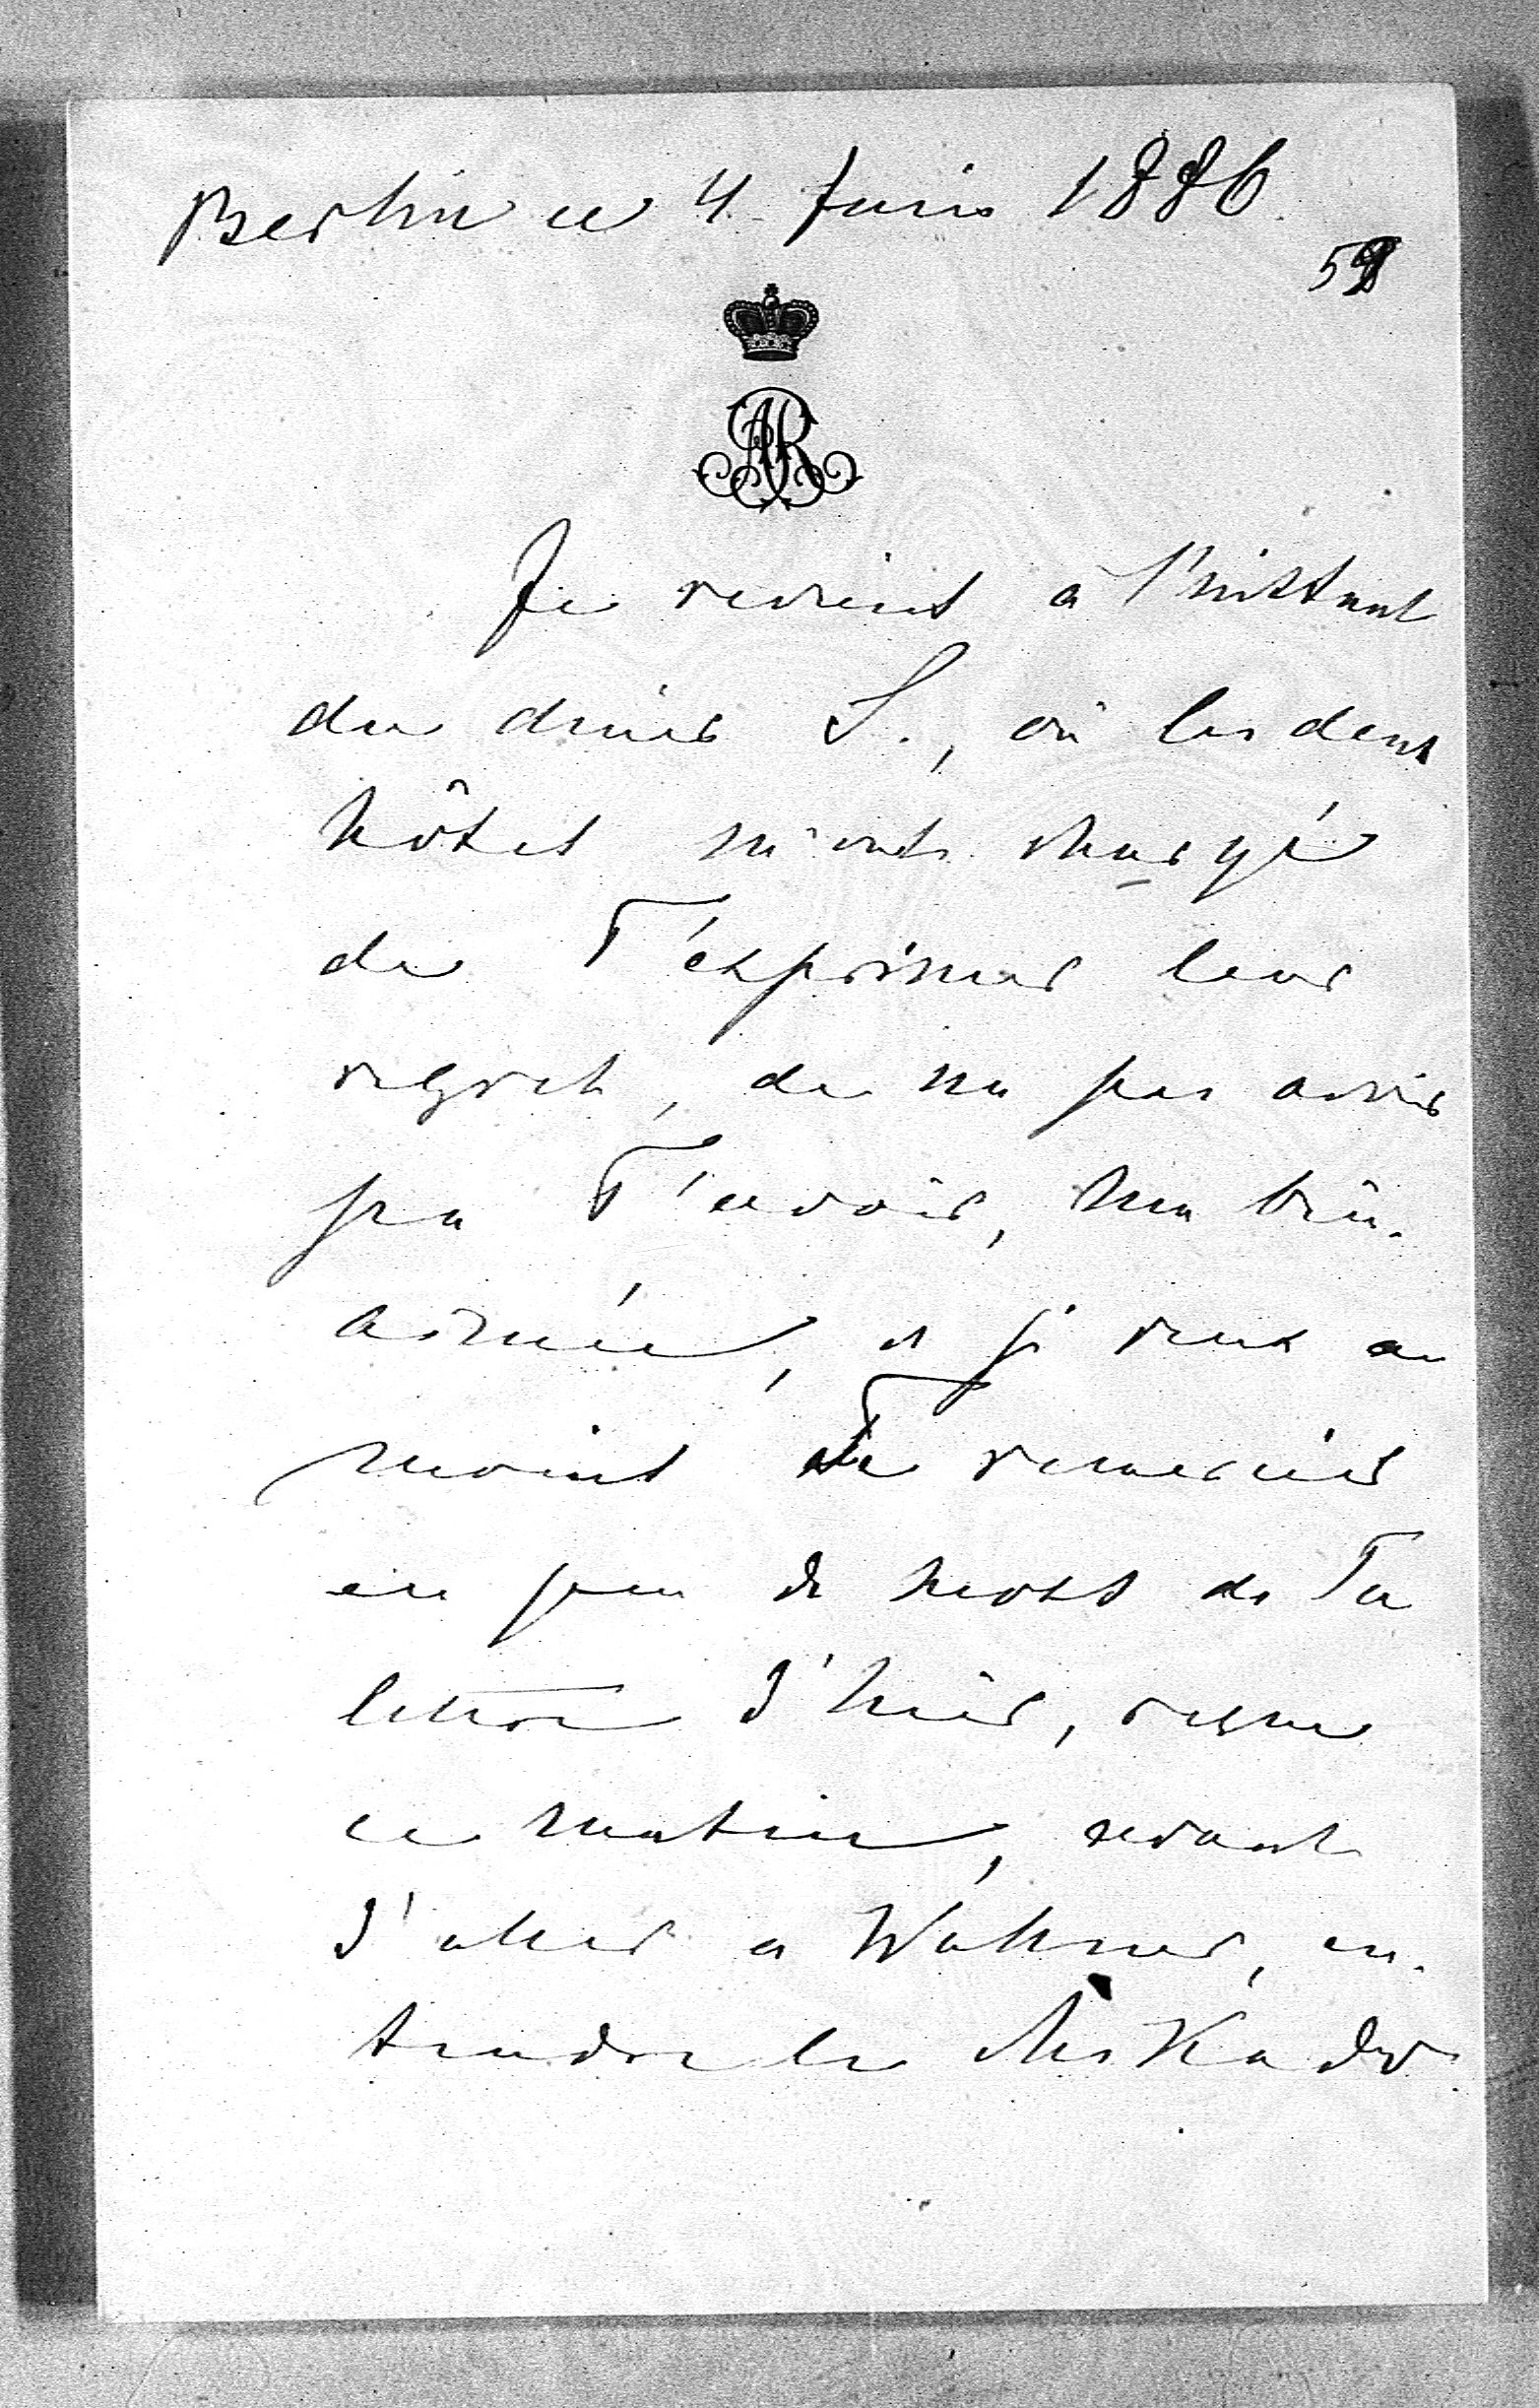 Berlin ce 4 Juin 1886.
59
AR
Je reviens à l'instant
du diner S., où les deux
hôtes m'ont chargé
de T'exprimer leur
regret, de ne pas avoir
pu T'avoir, ma bien-
aimée, et je veux au
moins Te remercier
en peu de mots de Ta
lettre d'hier, reçue
ce matin, avant
d'aller a Wallner, en-
tendre le MiKado